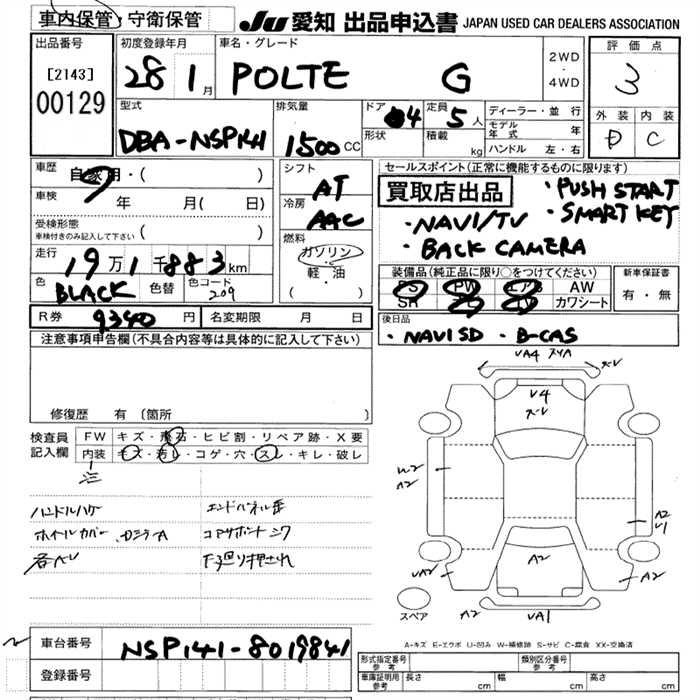 車内保管・守衛保管
JU 愛知 出品申込書 JAPAN USED CAR DEALERS ASSOCIATION
出品番号
[2143]
00129
初度登録年月
28 1月
車名・グレード
POLTE G
2WD
・
4WD
評価点
3
外装 内装
D C
型式
DBA-NSP141
排気量
1500cc
ドア 4
形状
定員 5人
積載 kg
ディーラー・並行
モデル年式 年
ハンドル 左・右
車歴
自家用・( )
車検
年 月( 日)
受検形態
車検付きのみ記入して下さい ( )
走行
19万1千883km
色
BLACK
色替
色コード
209
シフト
AT
冷房
AAC
燃料
ガソリン
・
軽・油
( )
セールスポイント(正常に機能するものに限ります)
買取店出品
・PUSH START
・SMART KEY
・NAVI/TV
・BACK CAMERA
装備品(純正品に限り○をつけてください)
PS PW エアB AW
SR TV カワシート
新車保証書
有・無
R券 9340円
名変期限 月 日
後日品
・NAVI SD ・B-CAS
注意事項申告欄(不具合内容等は具体的に記入して下さい)
修復歴 有(箇所 )
検査員記入欄
FW キズ・飛石・ヒビ割・リペア跡・X要
内装 キズ・汚レ・コゲ・穴・スレ・キレ・破レ
ハンドルハゲ
エンドパネル歪
ホイールカバー
コアサポート
下廻り押され
VA4 スリA
ズレ
V4
ズレ
A2
A2
V1
VA2
A2
A2
A2
VA1
スペア
A-キズ E-エクボ U-凹み W-補修跡 S-サビ C-腐食 XX-交換済
車台番号
NSP141-8019841
登録番号
形式指定番号
参考
類別区分番号
参考
車庫証明用
参考
長さ cm
幅 cm
高さ cm